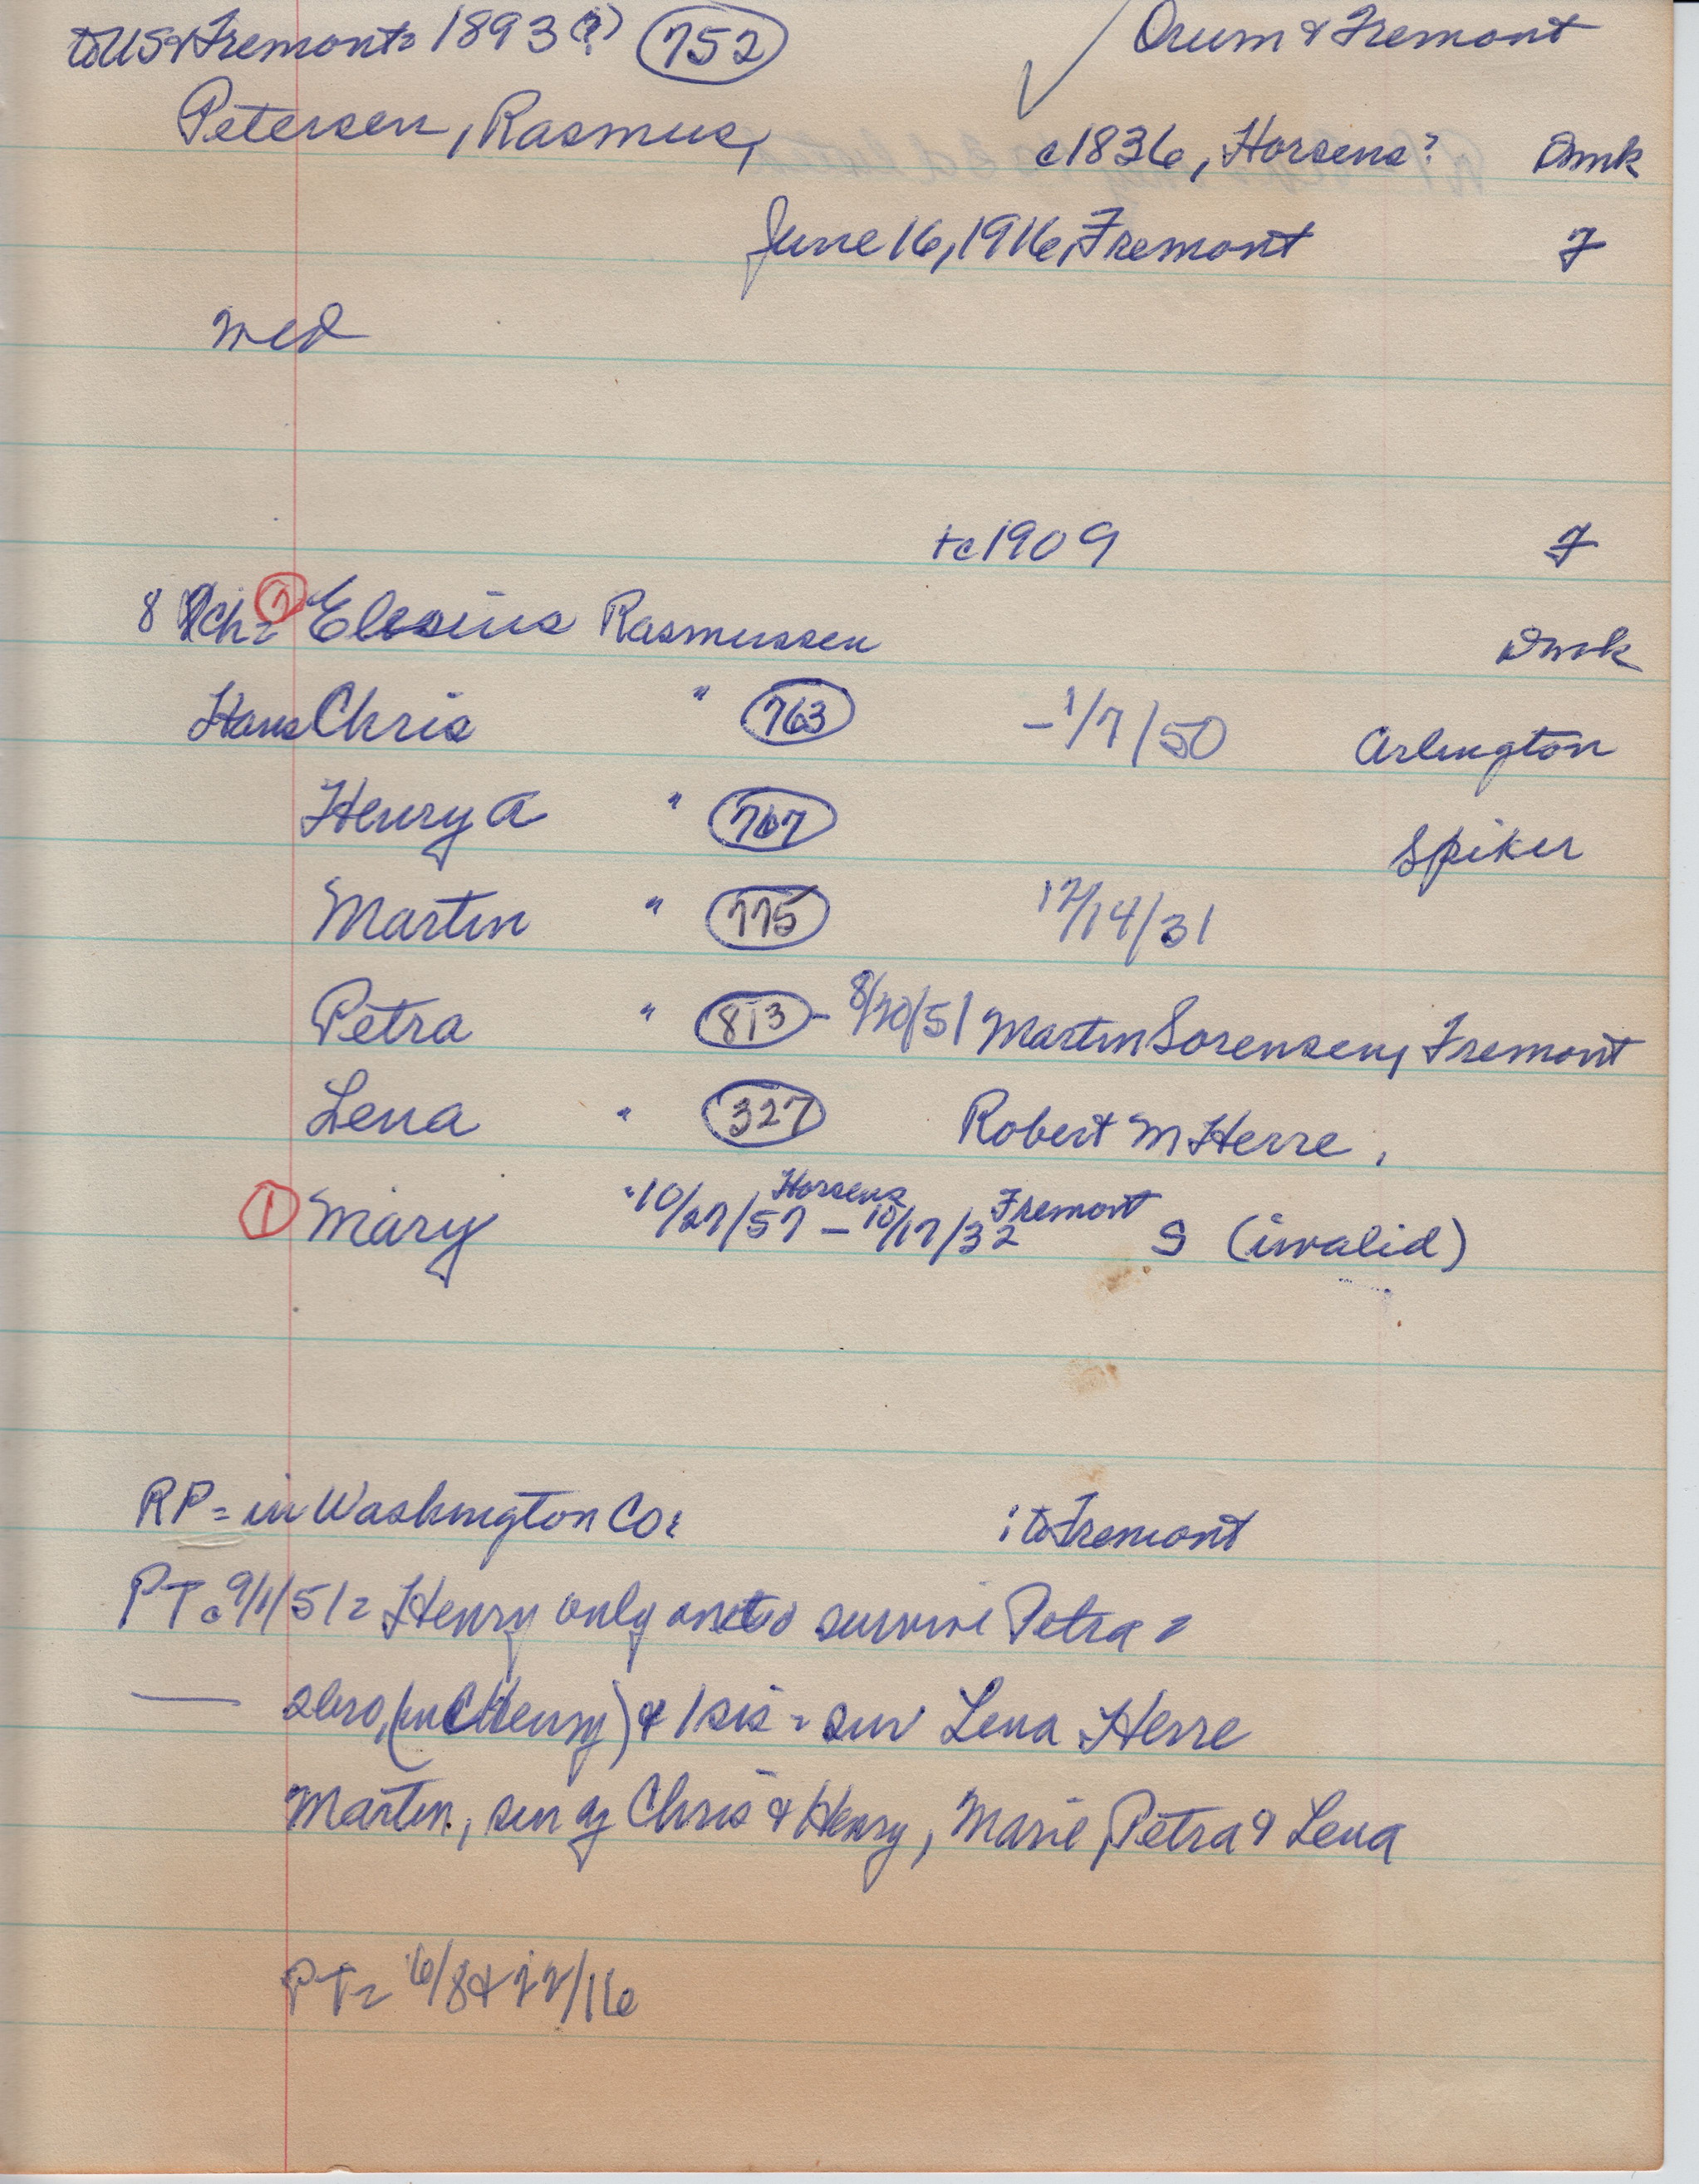 to US & Fremont = 1893 (?) 752 Orum & Fremont
Petersen, Rasmus, c1836, Horsens? Dmk
June 16, 1916, Fremont F
med
+c1909 F
8 ch = Rasmussen Dmk
Hans Chris " 763 -1/7/50 Arlington
Henry A " 767 Spiker
Martin " 775 12/14/31
Petra " 813 - 8/20/51 Martin Sorensen, Fremont
Lena " 327 Robert M Herre,
1 Mary 10/27/57 Horsens - 10/17/32 Fremont S (invalid)
RP = in Washington Co: : to Fremont
PT = 9/1/51 = Henry only one to survive Petra =
(inc Henry) & 1 sis = sur Lena Herre
Martin, sur by Chris & Henry, Marie, Petra & Lena
PT = 6/8 & 22/16